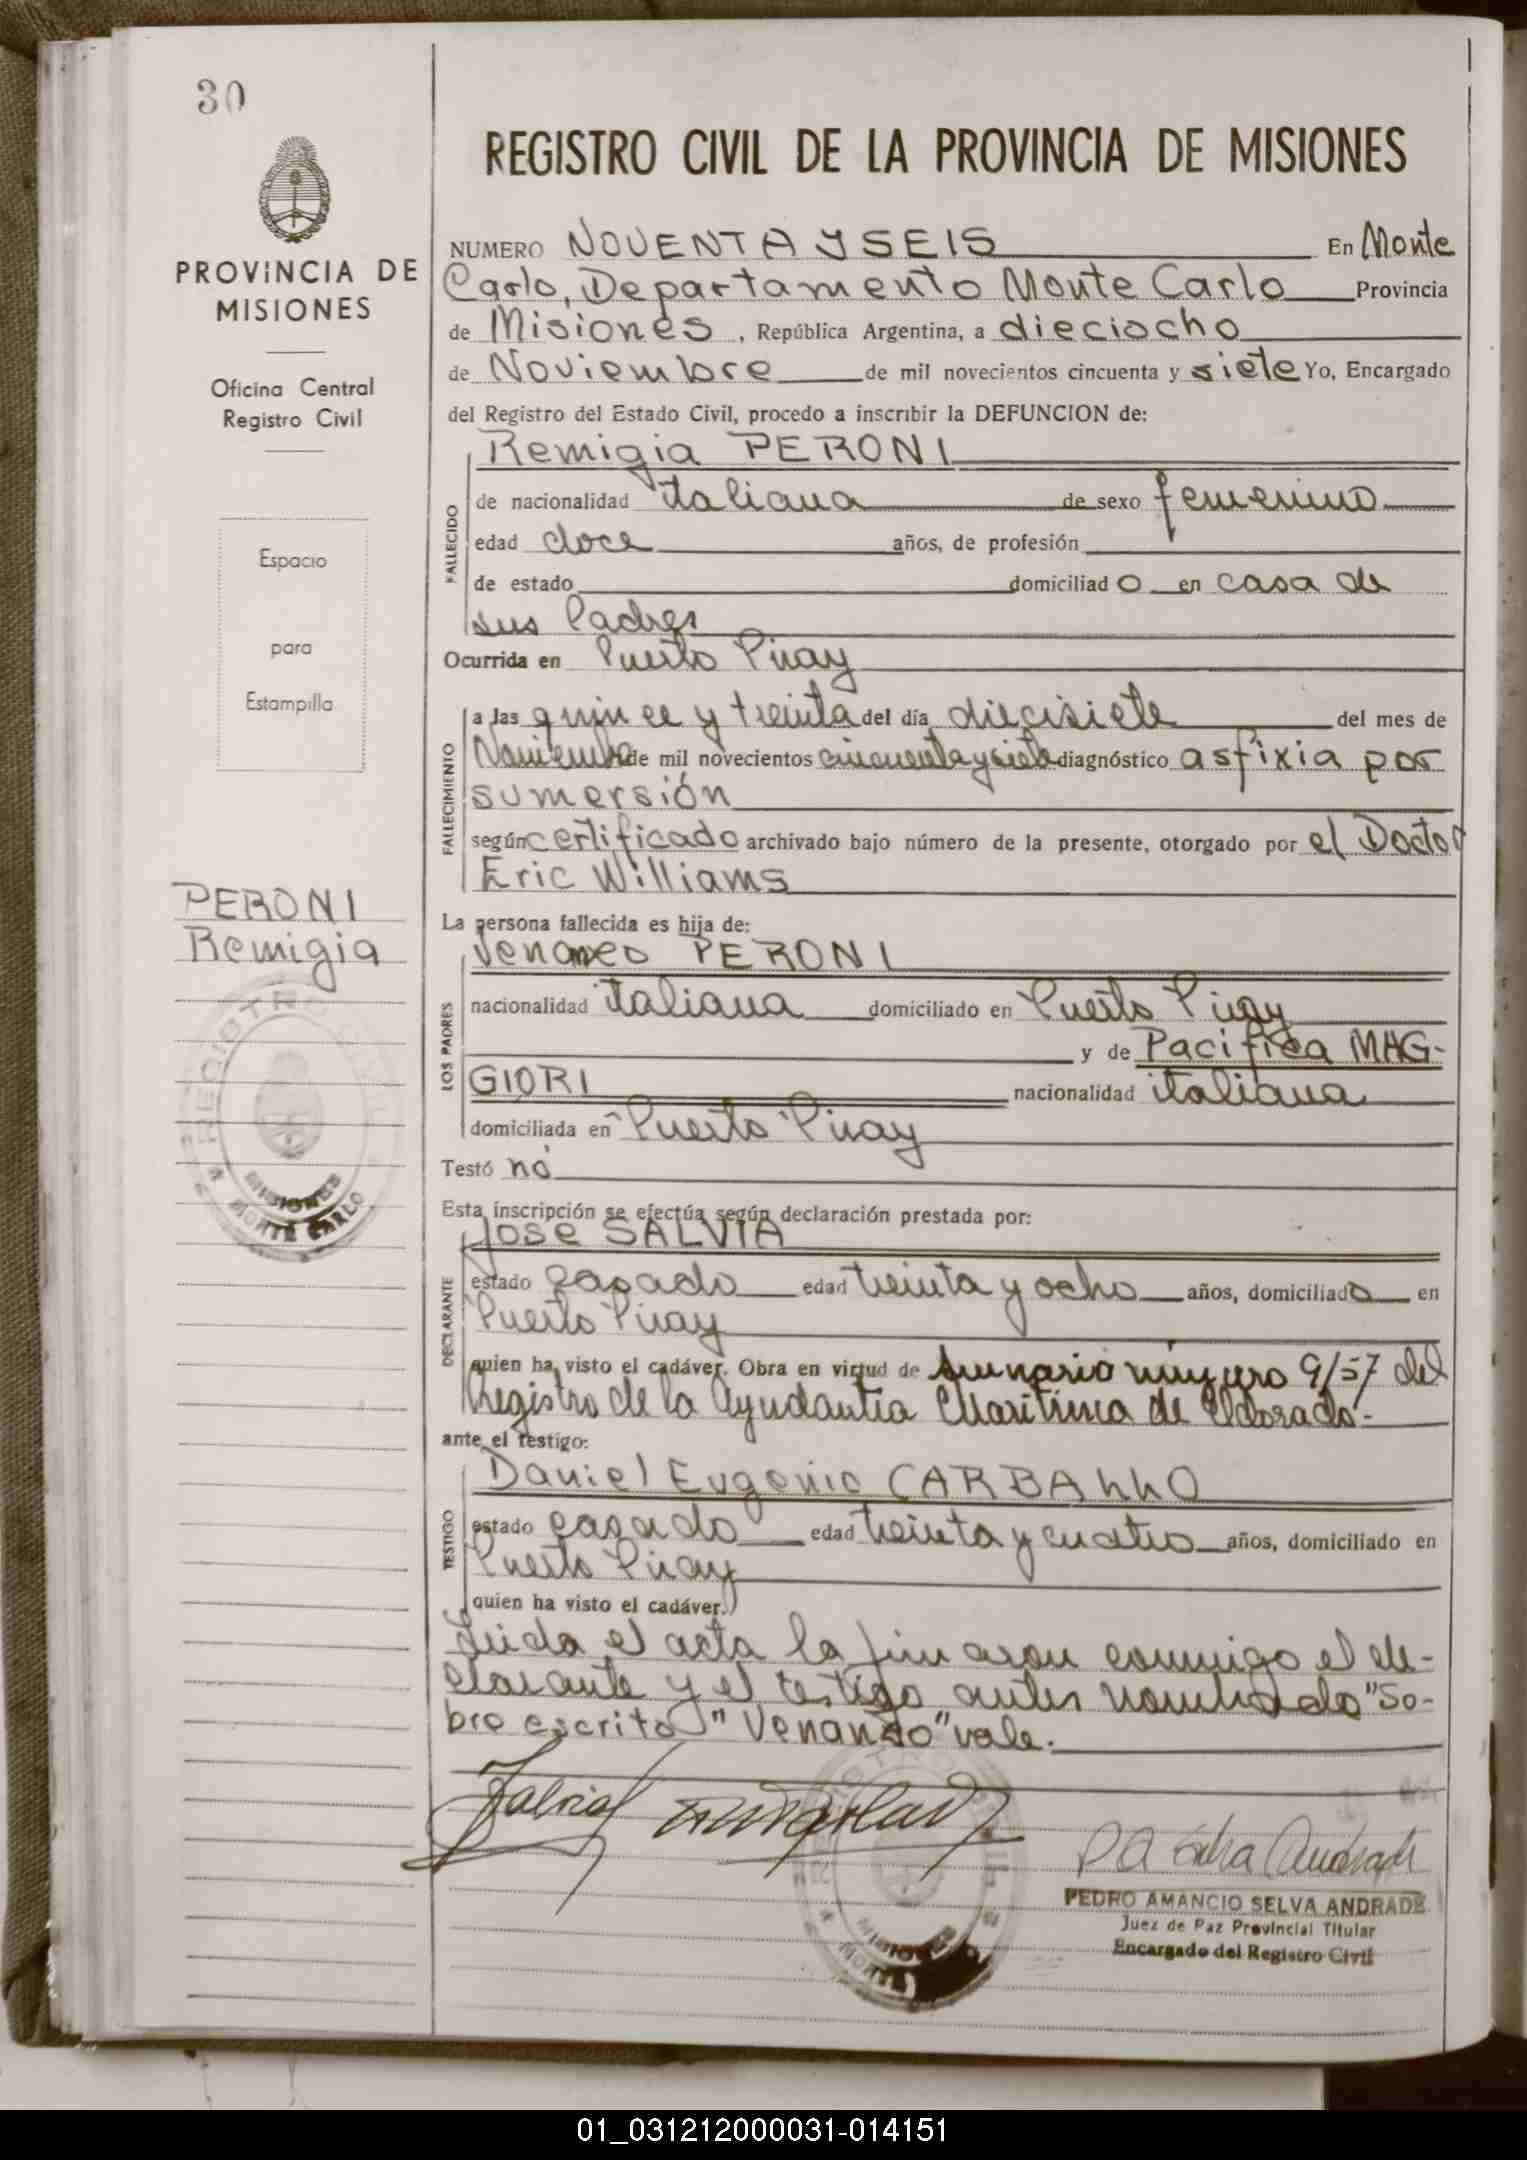 30
PROVINCIA DE
MISIONES
Oficina Central
Registro Civil
Espacio
para
Estampilla
PERONI
Remigia
REGISTRO CIVIL
MISIONES
MONTE CARLO
REGISTRO CIVIL DE LA PROVINCIA DE MISIONES
NUMERO NOVENTA Y SEIS En Monte
Carlo, Departamento Monte Carlo Provincia
de Misiones, República Argentina, a dieciocho
de Noviembre de mil novecientos cincuenta y siete Yo, Encargado
del Registro del Estado Civil, procedo a inscribir la DEFUNCION de:
FALLECIDO
Remigia PERONI
de nacionalidad italiana de sexo femenino
edad doce años, de profesión
de estado domiciliado en casa de
sus Padres
Ocurrida en Puerto Piray
FALLECIMIENTO
a las quince y treinta del día diecisiete del mes de
Noviembre de mil novecientos cincuenta y siete diagnóstico asfixia por
sumersión
según certificado archivado bajo número de la presente, otorgado por el Doctor
Eric Williams
La persona fallecida es hija de:
LOS PADRES
PERONI
nacionalidad italiana domiciliado en Puerto Piray
y de Pacifica MAG-
GIORI nacionalidad italiana
domiciliada en Puerto Piray
Testó nó
Esta inscripción se efectúa según declaración prestada por:
DECLARANTE
Jose SALVIA
estado casado edad treinta y ocho años, domiciliado en
Puerto Piray
quien ha visto el cadáver. Obra en virtud de sumario número 9/57 del
Registro de la Ayudantia Maritima de Eldorado.-
ante el testigo:
TESTIGO
Daniel Eugenio CARBALLO
estado casado edad treinta y cuatro años, domiciliado en
Puerto Piray
quien ha visto el cadáver.
Leida el acta la firmaron conmigo el de-
clarante y el testigo antes nombrado "So-
bre escrito" "Venanzo" vale.
JSalvia
MISIONES
MONTE
P A Selva Andrade
PEDRO AMANCIO SELVA ANDRADE
Juez de Paz Provincial Titular
Encargado del Registro Civil
01_031212000031-014151